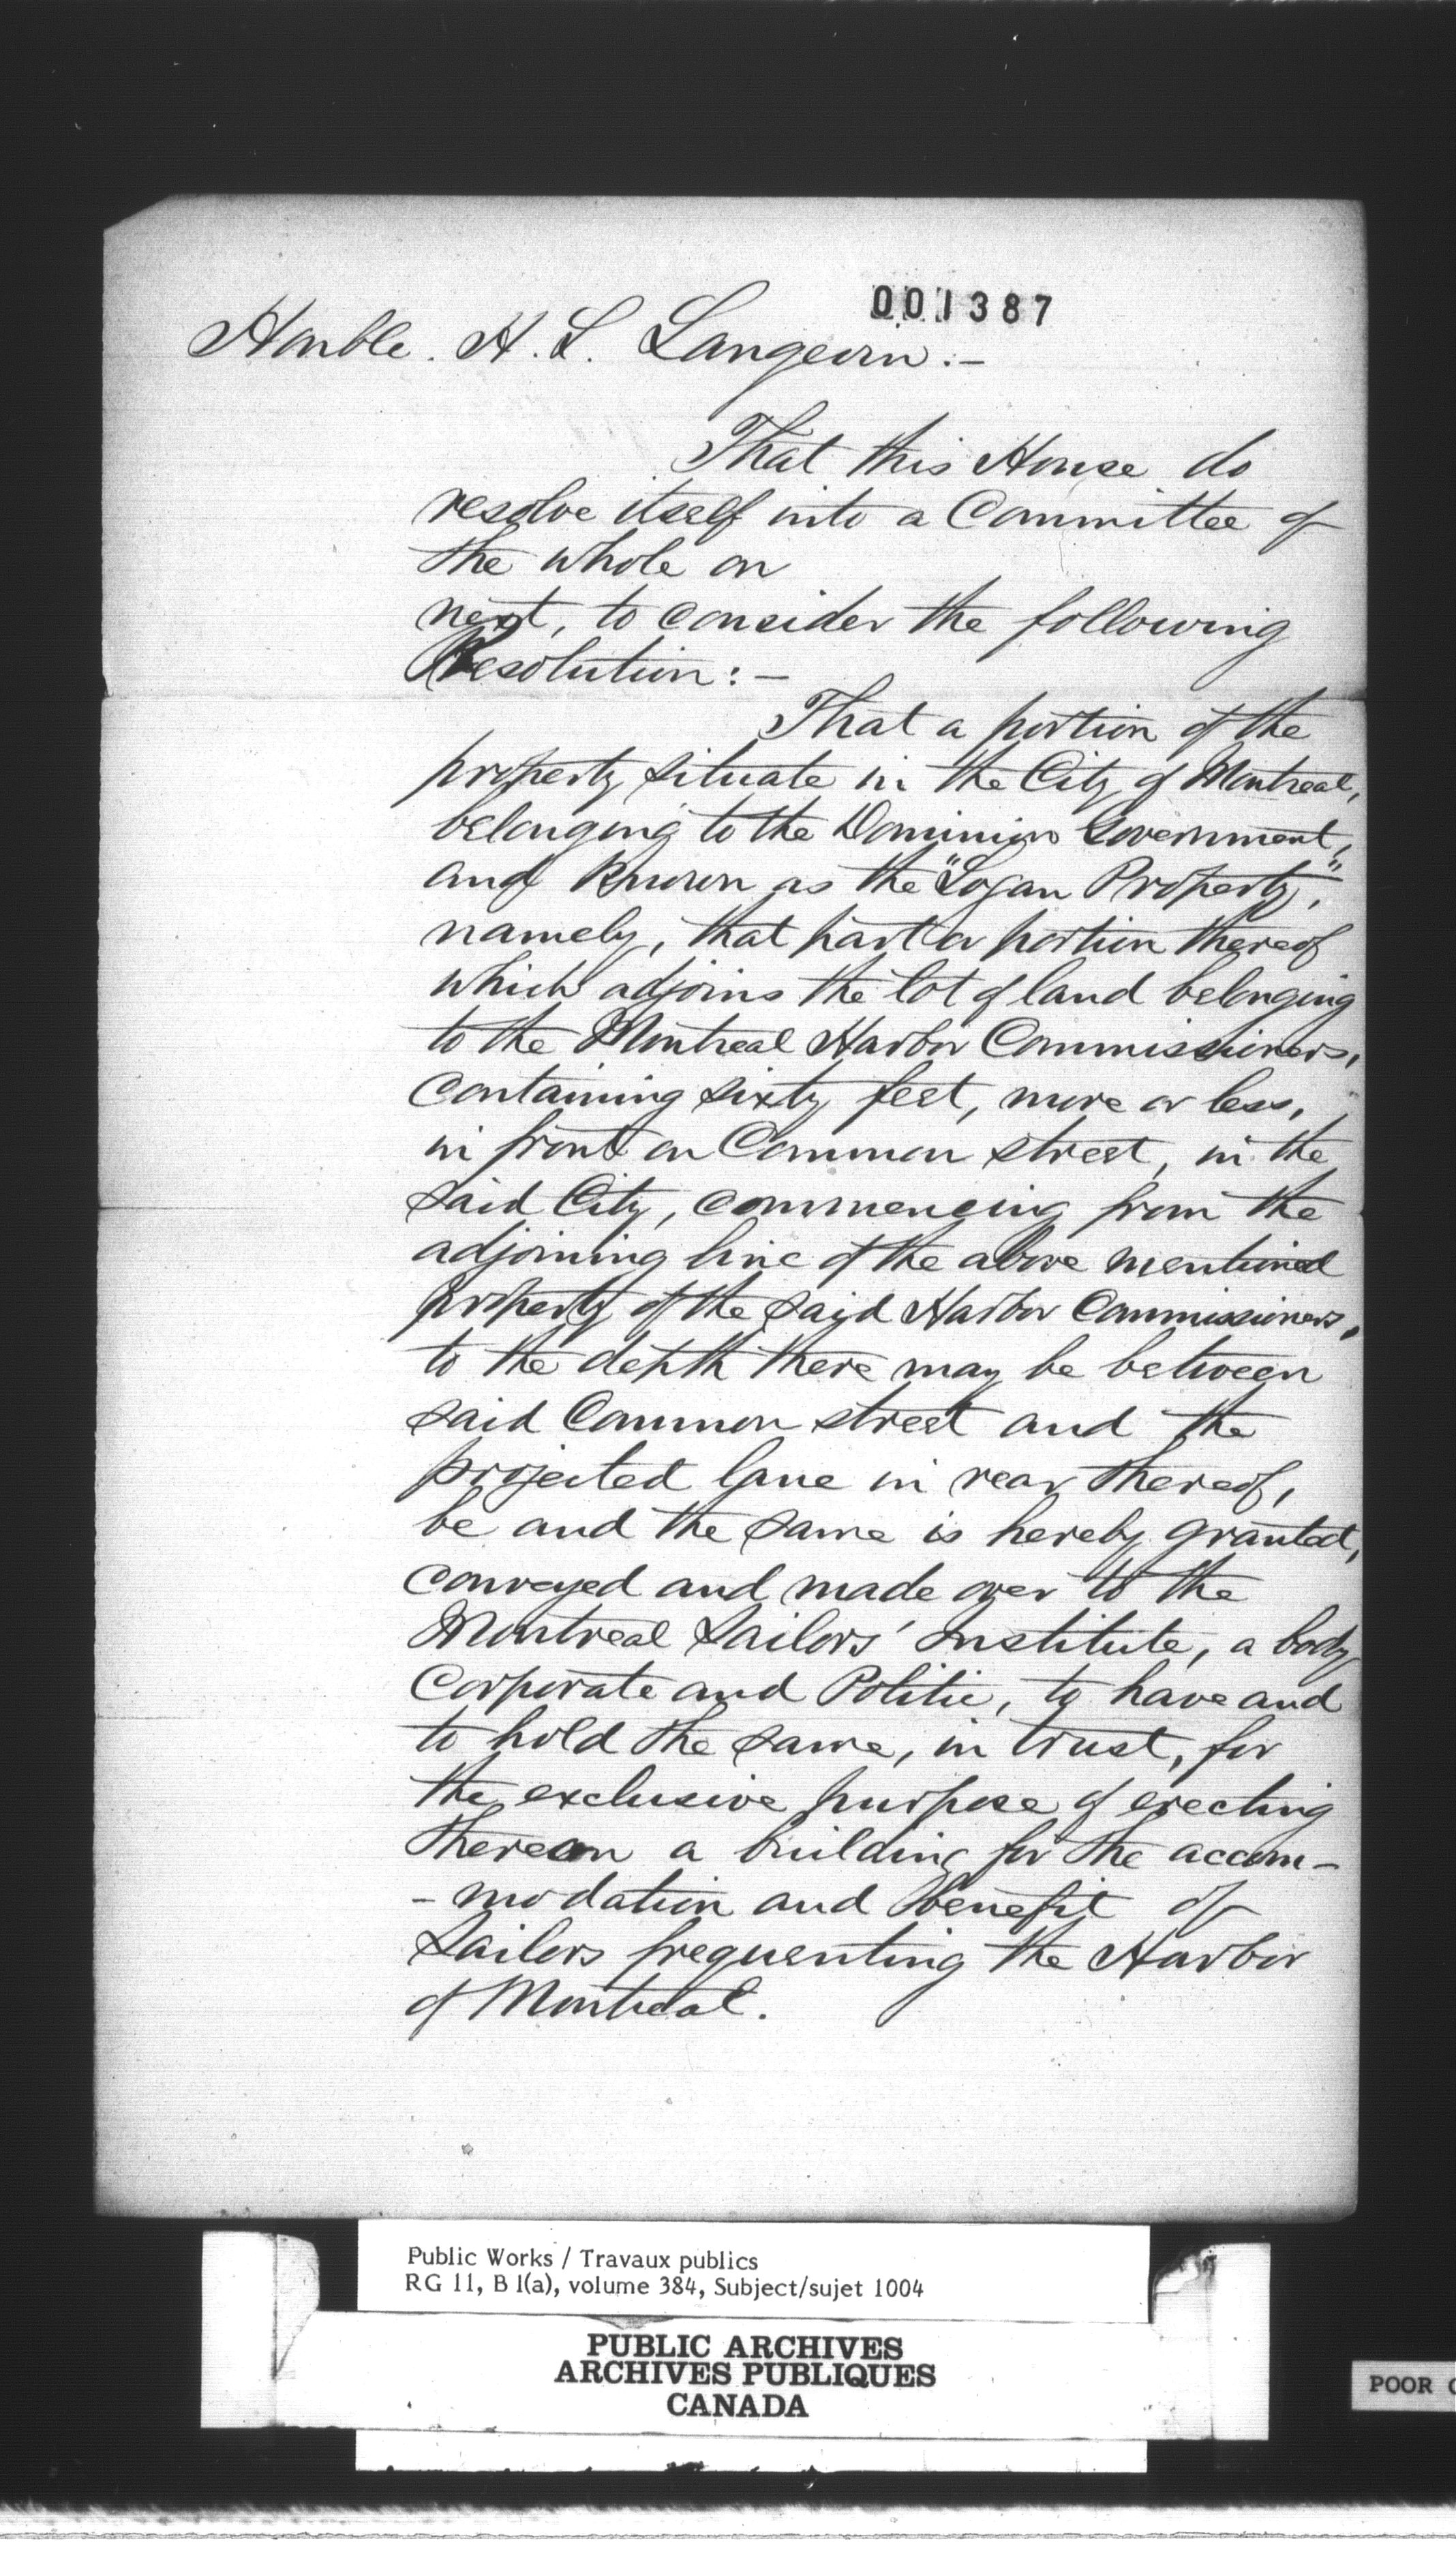 001387
Honble. H. L. Langevin:-
That this House do
resolve itself into a Committee of
the whole on
next, to consider the following
Resolution:-
That a portion of the
property situate in the City of Montreal,
belonging to the Dominion Government,
and known as the "Logan Property,"
namely, that part or portion thereof
which adjoins the lot of land belonging
to the Montreal Harbor Commissioners,
containing sixty feet, more or less,
in front on Common street, in the
said City, commencing from the
adjoining line of the above mentioned
property of the said Harbor Commissioners,
to the depth there may be between
said Common street and the
projected lane in rear thereof,
be and the same is hereby granted,
conveyed and made over to the
Montreal Sailors' Institute, a body
Corporate and Politic, to have and
to hold the same, in trust, for
the exclusive purpose of erecting
thereon a building for the accom-
-modation and benefit of
Sailors frequenting the Harbor
of Montreal.
Public Works / Travaux publics
RG 11, B 1(a), volume 384, Subject/sujet 1004
PUBLIC ARCHIVES
ARCHIVES PUBLIQUES
CANADA
POOR